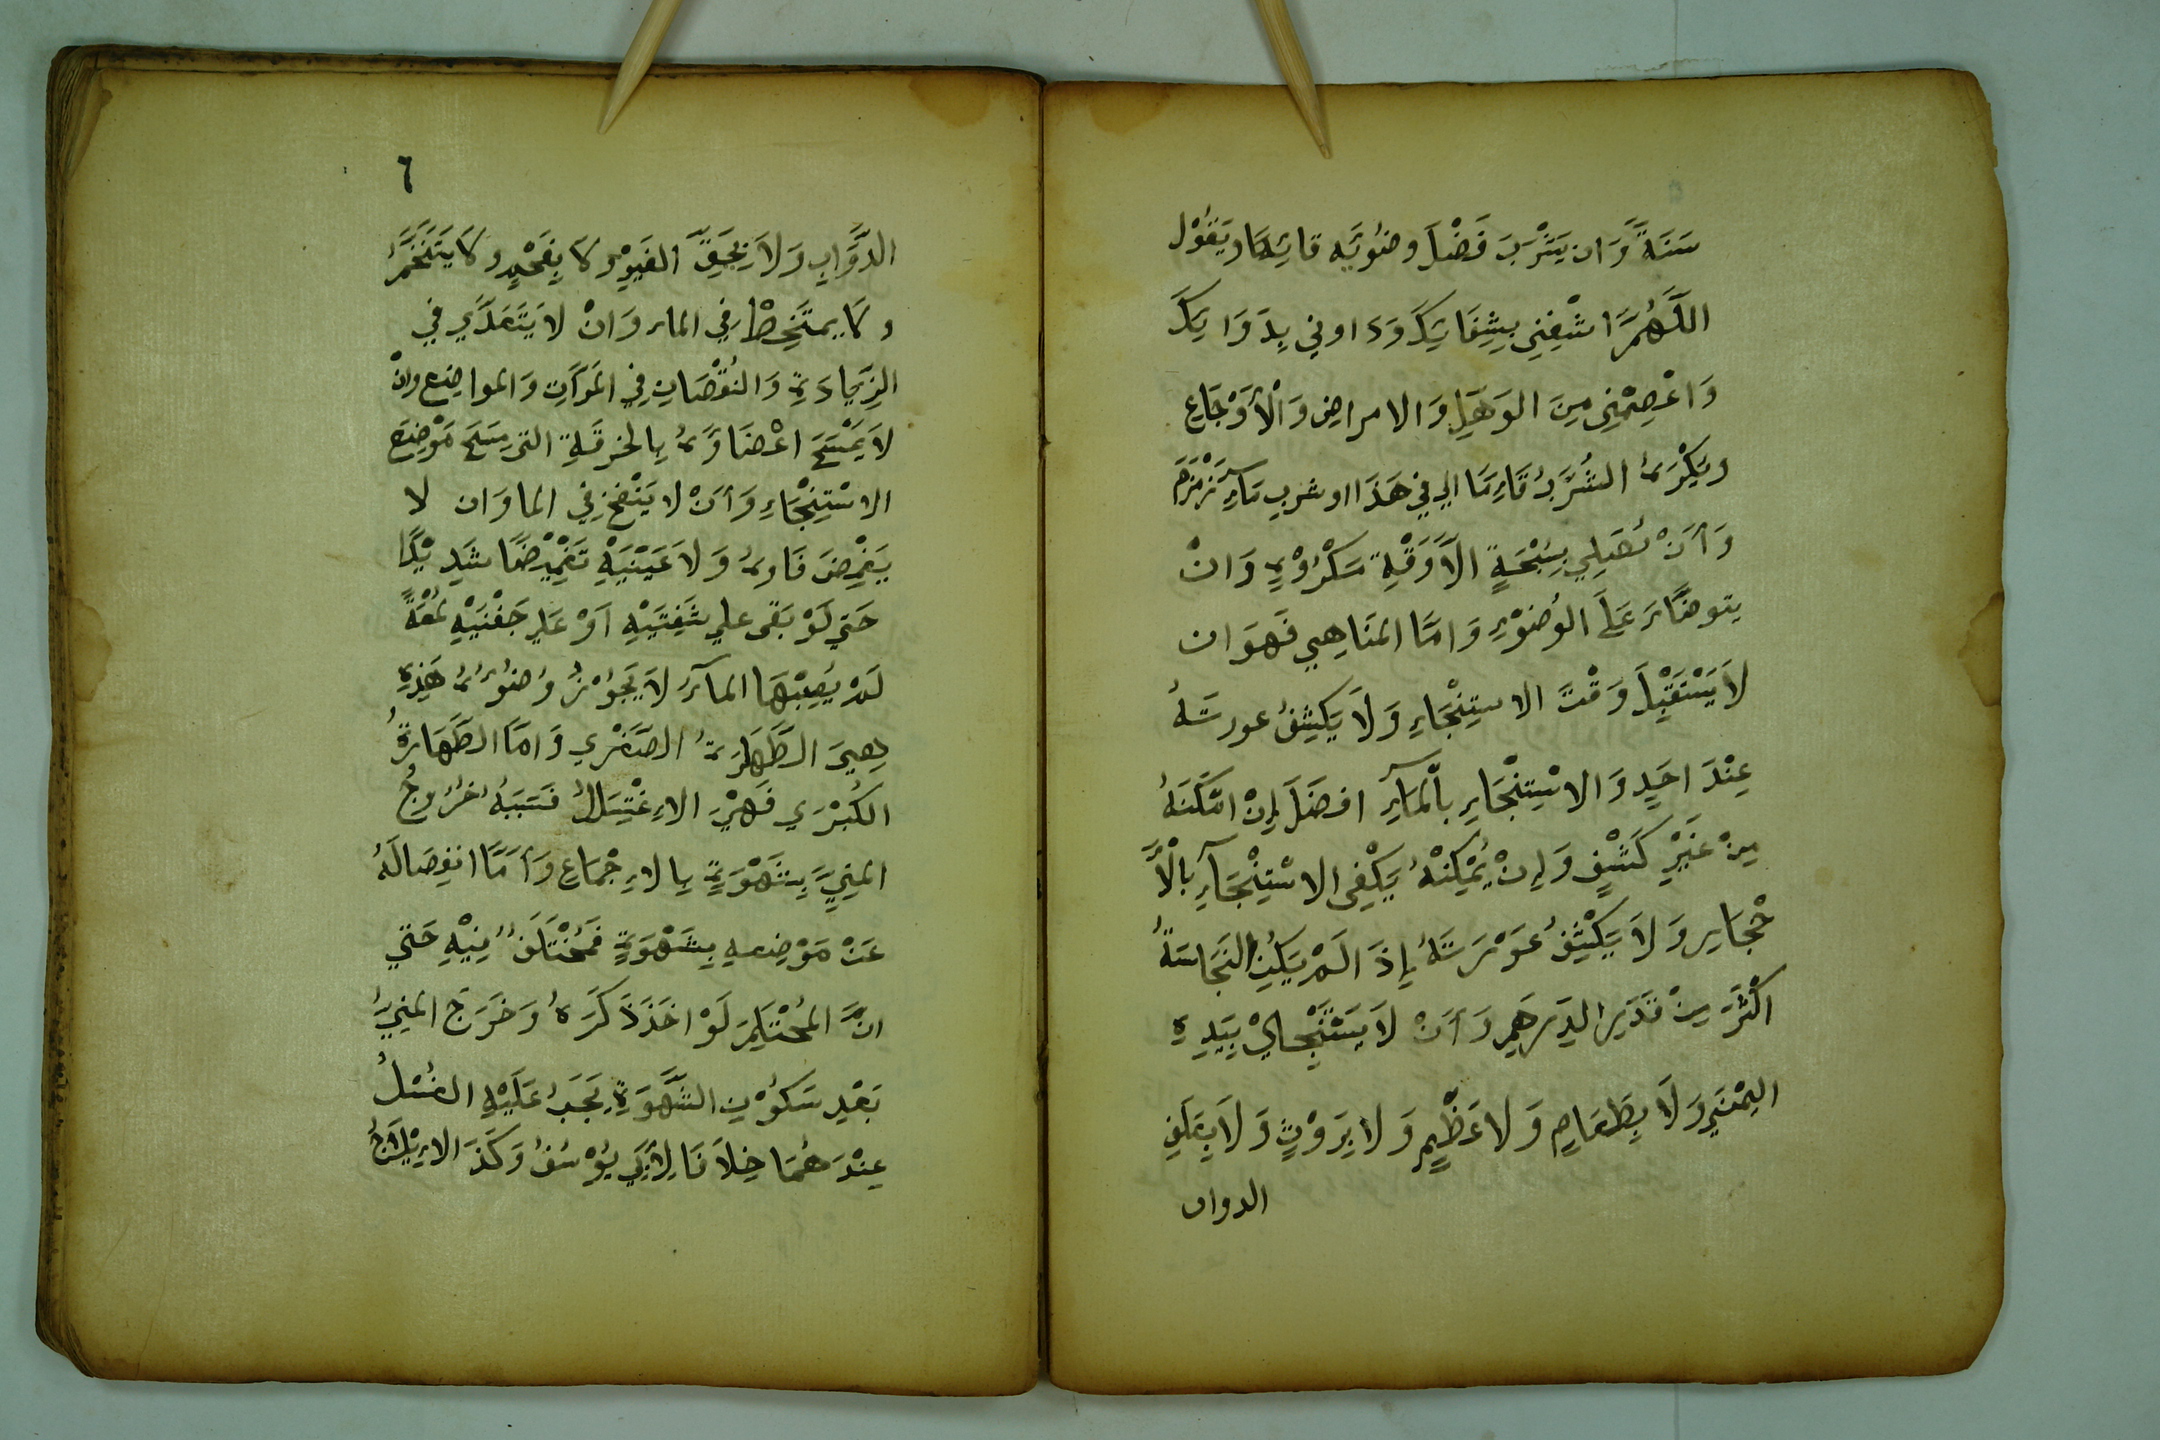 سَنَةً وَان يَشْرَبَ فَضْلَ وضُوئِه قائِمًا وَيَقُوْل
اللَّهُمَّ اشْفِنِي بِشِفَائِكَ وَدَاوني بِدَوَايِكَ
وَاعْصِمْنِي مِنَ الوَهَلِ وَالامراضِ وَالْأَوْجَاعِ
ويَكْرَهُ الشُرْبُ قَايِمَا الي في هَذَا او شرب مَآءِ زَمْزَمَ
وَأَنْ يُصَلِي بِسُبْحَةٍ الَّا وَقْتِ مَكْرُوْهٍ وَانْ
يتوضَّاءَ عَلَي الوُضُوْءِ وَامَّا المنَاهِيي فَهوَ ان
لاَ يَسْتَقْبِلَ وَقْتَ الاستِنْجَاءِ وَلَا يَكشِفُ عورتَهُ
عِنْدَ احَدٍ وَالاسْتِنْجَاءِ بالْمآءِ افضَلَ اِنْ امْكَنَهُ
مِنْ غَيْرِ كَشْفٍ وَاِنْ يُمْكِنْهُ يَكْفِي الاسْتِنْجَآءِ بالْأَ
حْجَارِ وَلَا يَكْشِفُ عَوْرَتَهُ اِذَا لَمْ يَكُنِ النَجَاسَةُ
اكْثَرَ مِنْ قَدَرِ الدِرهَمِ وَأَنْ لَا يَسْتَنْجِيْ بِيَدِهِ
اليُمْنَي وَلَا بِطَعَامٍ وَلا عَظْمٍ وَلا بِرَوْثٍ وَلَا بِعَلَفِ
الدواب
٦
الدَّوَّابِ وَلاَ بِحَقِّ الغَيْرِ وكا بِفَحْمٍ وكا يَتَنَخَّمُ
وكا يمتَخِطُ فِي الماء وَانْ لاَ يَتَعَدَّي في
الزِّيَادَةِ وَالنُقْصَانِ فِي المَرَّاتِ وَالمواضِع وانْ
لاَ يَمْسَحَ اعْضَاؤَهُ بِالخرقَةِ التي مَسَحَ مَوْضِعَ
الاسْتِنْجَاءِ وَأَنْ لا يَنْفخ فِي الما وَان لا
يَغْمِضَ فَاهُ وَلاَ عَيْنَيْهِ تَغْمِيْضًا شَدِيْدًا
حَتي لَوْ بَقى علي شَفِتَيْهِ اَوْ عَلي جَفْنَيْهِ لُمْعَةً
لَمْ يُصِبْهَا المآءُ لاَ يَجُوْزُ وُضُوْءُهُ هَذِهِ
هِيَ الطَهَارَةُ الصَغْرِي وَامَّا الطَهَارَةُ
الكُبْرَي فَهيَ الاِغْتِسَلُ فَسَبَبَهُ خُرُوجُ
المنِيِّ بِشَهْوَةٍ بِالاِجْمَاعِ وَأَمَّا انفِصَالَهُ
عَنْ مَوْضِعهِ بِشَهْوَةٍ فَمُخْتَلَفُ فِيْهِ حَتي
انَّ المُحْتَلِمَ لَوْ اخَذَ ذَكَرَهُ وَخَرَجَ المنِيُّ
بَعْدِ سَكُوْنِ الشَّهْوَةِ يَجَبُ عَلَيْهِ الغُسْلُ
عِنْدَ هُمَا خِلاَفَا لِأَبِي يُوْسُفُ وَكَذَ الاِيْلاَجُ